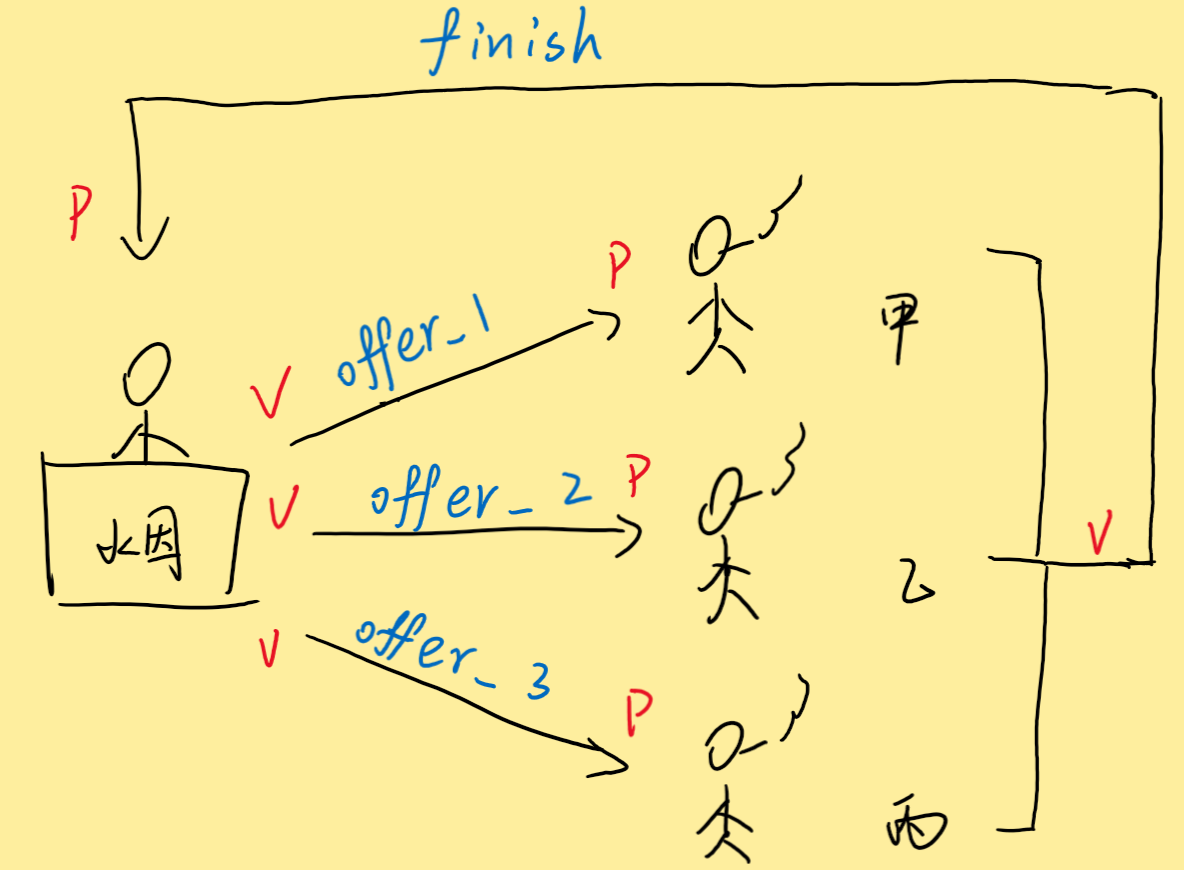 finish
P
P
offer_1
甲
V
P
offer_2
V
V
乙
offer_3
V
P
丙